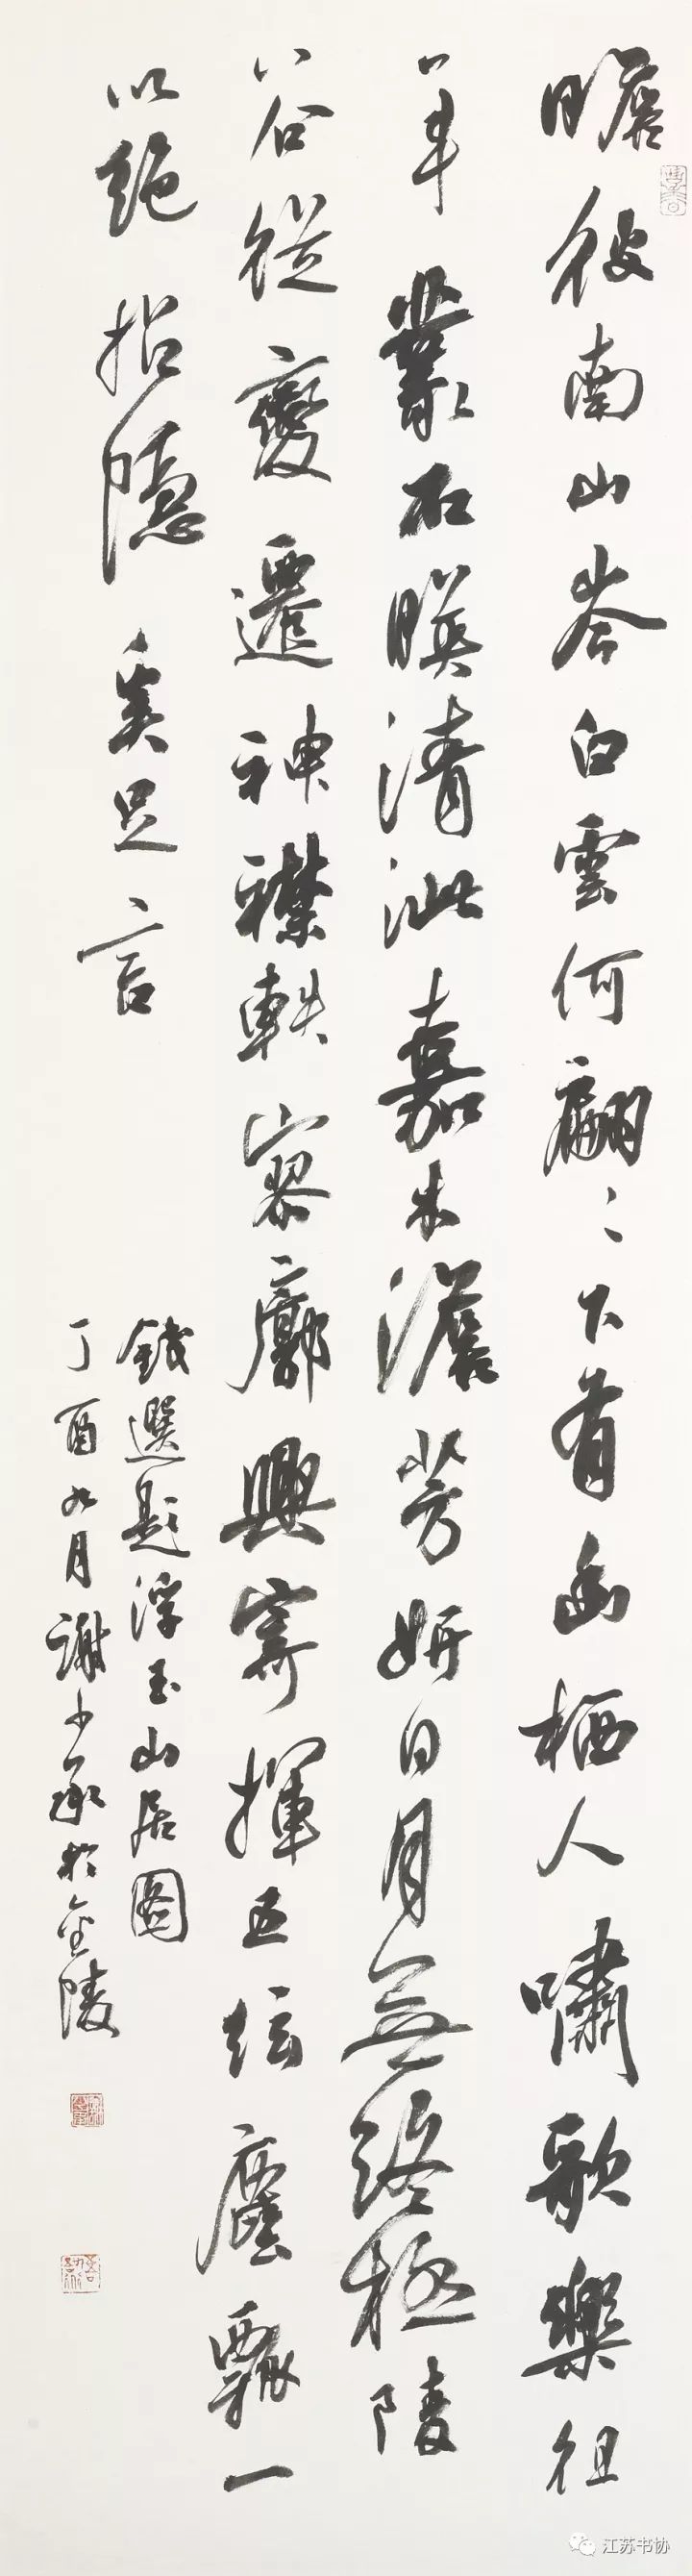 瞻彼南山岑白雲何翩〻下有幽栖人嘯歌樂徂
年叢石暎清泚嘉木澹芳妍日月無終極陵
谷從變遷神襟軼寥廓興寄揮五絃塵一
以絕招隱奚足言
錢選題浮玉山居圖
丁酉九月謝少承於金陵
江苏书协